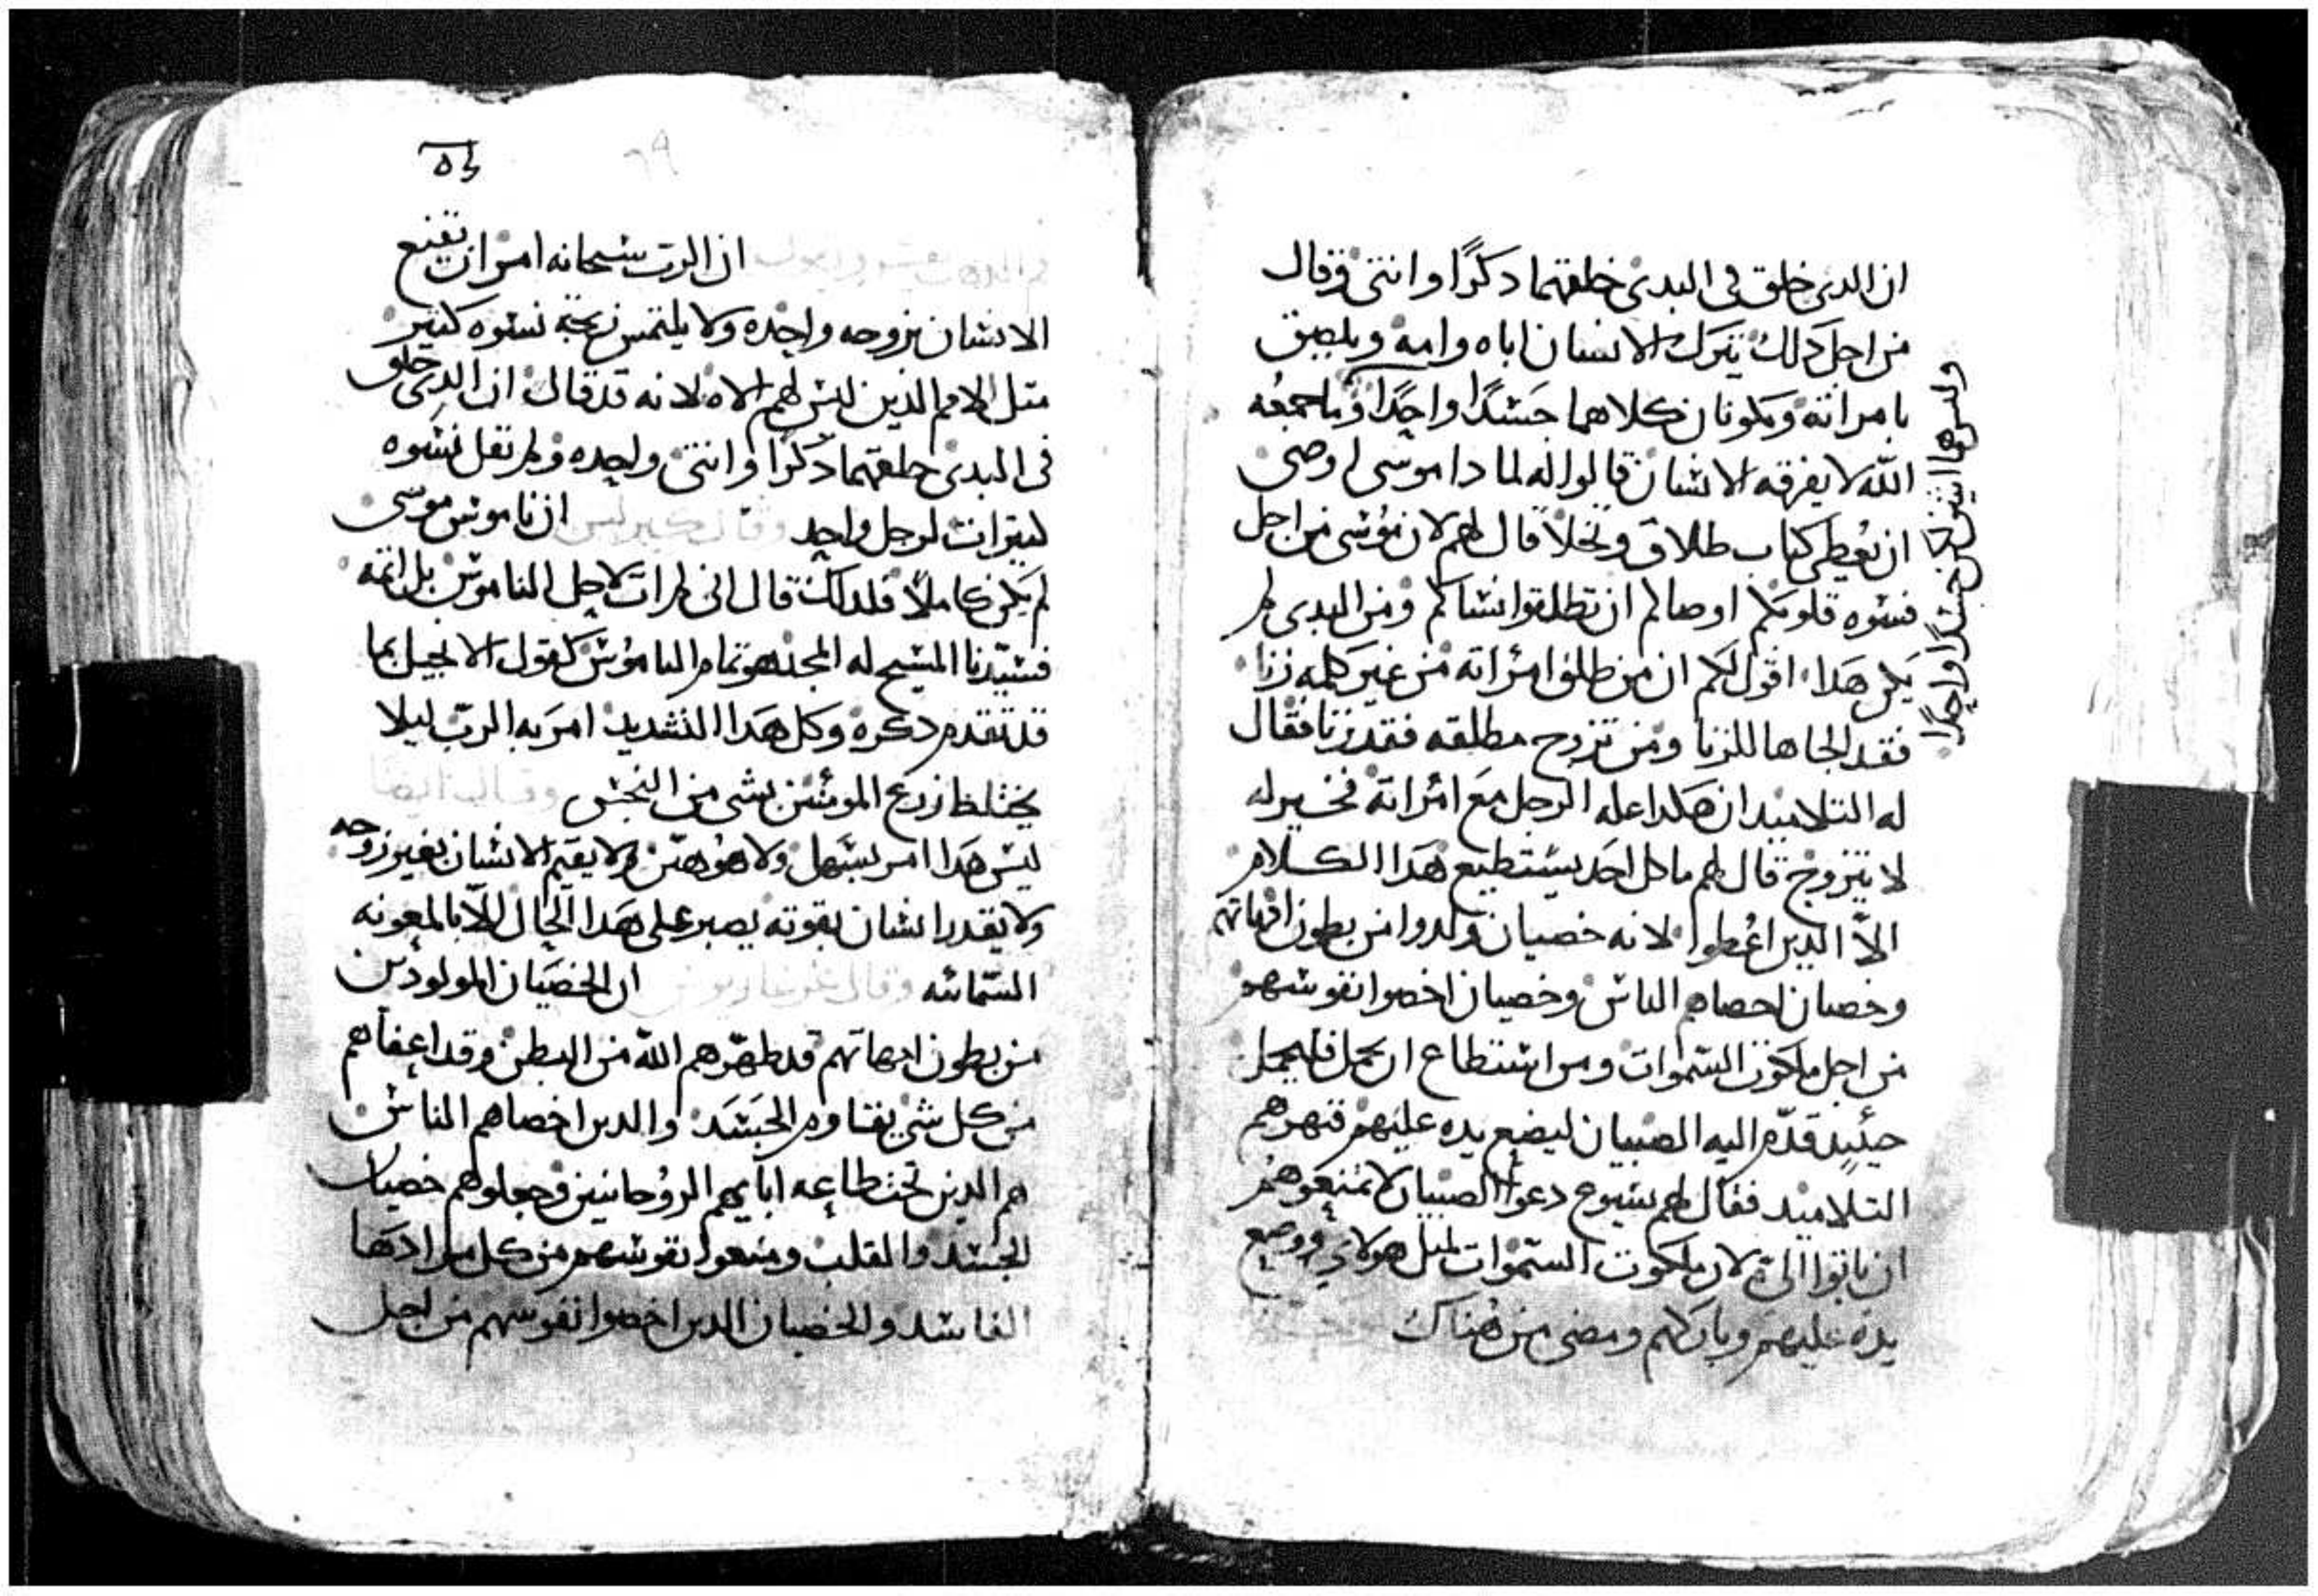 ان الدى خلق فى البدى خلقهما دكرًا وانتى وقال
من اجل دلك يترك الانسان اباه وامه ويلصق
بامراته ويكونان كلاهما جسدًا واحدًا وما جمعه
الله لا يفرقه الانسان قالوا له لما دا موسى اوصى
ان يُعطى كتاب طلاق وتخلا قال لهم لان موسى من اجل
قسوه قلوبكم اوصاكم ان تطلقوا نساكم ومن البدى لم
يكن هدا اقول لكم ان من طلق امراته من غير كلمه زنا
فقد الجاها للزنا ومن تزوج مطلقه فقد زنا فقال
له التلاميد ان هكدا عله الرجل مع امراته فخير له
لا يتزوج قال لهم ما كل احد يستطيع هدا الكلام
الاّ الدين اعُطوا لانه خصيان ولدوا من بطون امهاتهم
وخصيان احصاهم الناس وخصيان اخصوا نفوسهم
من اجل ملكوت السموات ومن استطاع ان يحمل فليحمل
حينيد قدّم اليه الصبيان ليضع يده عليهم فنهرهم
التلاميد فقال لهم يسوع دعوا الصبيان لا تمنعوهم
ان ياتوا الىّ لان ملكوت السموات لمثل هولاى ووضع
يده عليهم وباركهم ومضى من هناك
وليس هما اثنين لكن جسدًا واحدًا
ان الرب سبحانه امر ان يقنع
الانسان بزوجه واحده ولا يلتمس زيجة نسوه كتير
متل الامم الذين ليس لهم الاه لانه قد قال ان الدى خلق
فى البدى خلقهما دكرًا وانتى واحده ولم تقل نسوه
كتيرات لرجل واحد وقال كيرلس ان ناموس موسى
لم يكن كاملاً فلدلك قال انى لم ات لاحل الناموس بل اتمه
فسيّدنا المسيح له المجد هو تمام الناموس كقول الانجيل بما
قد تقدم دكره وكل هدا التشديد امر به الربّ ليلا
يختلط زرع المومنين بشى من النجس وقال ايضا
ليس هدا امر بسهل ولا هو هيّن ولا يقيم الانسان بغير زوجه
ولا يقدر انسان بقوته يصبر على هدا الحال الاّ بالمعونه
السمائيه وقال اغريغاريوس ان الخصيان المولودين
من بطون امهاتهم قد طهّرهم الله من البطن وقد اعفاهم
من كل شى يقاوم الجسد والدين اخصاهم الناس
هم الدين تحت طاعه ابايهم الروُحانيين وجعلوهم خصيان
الجسد والقلب ومنعوا نفوسهم من كل مرادها
الفاسد والخصيان الدين اخصوا نفوسهم من اجل